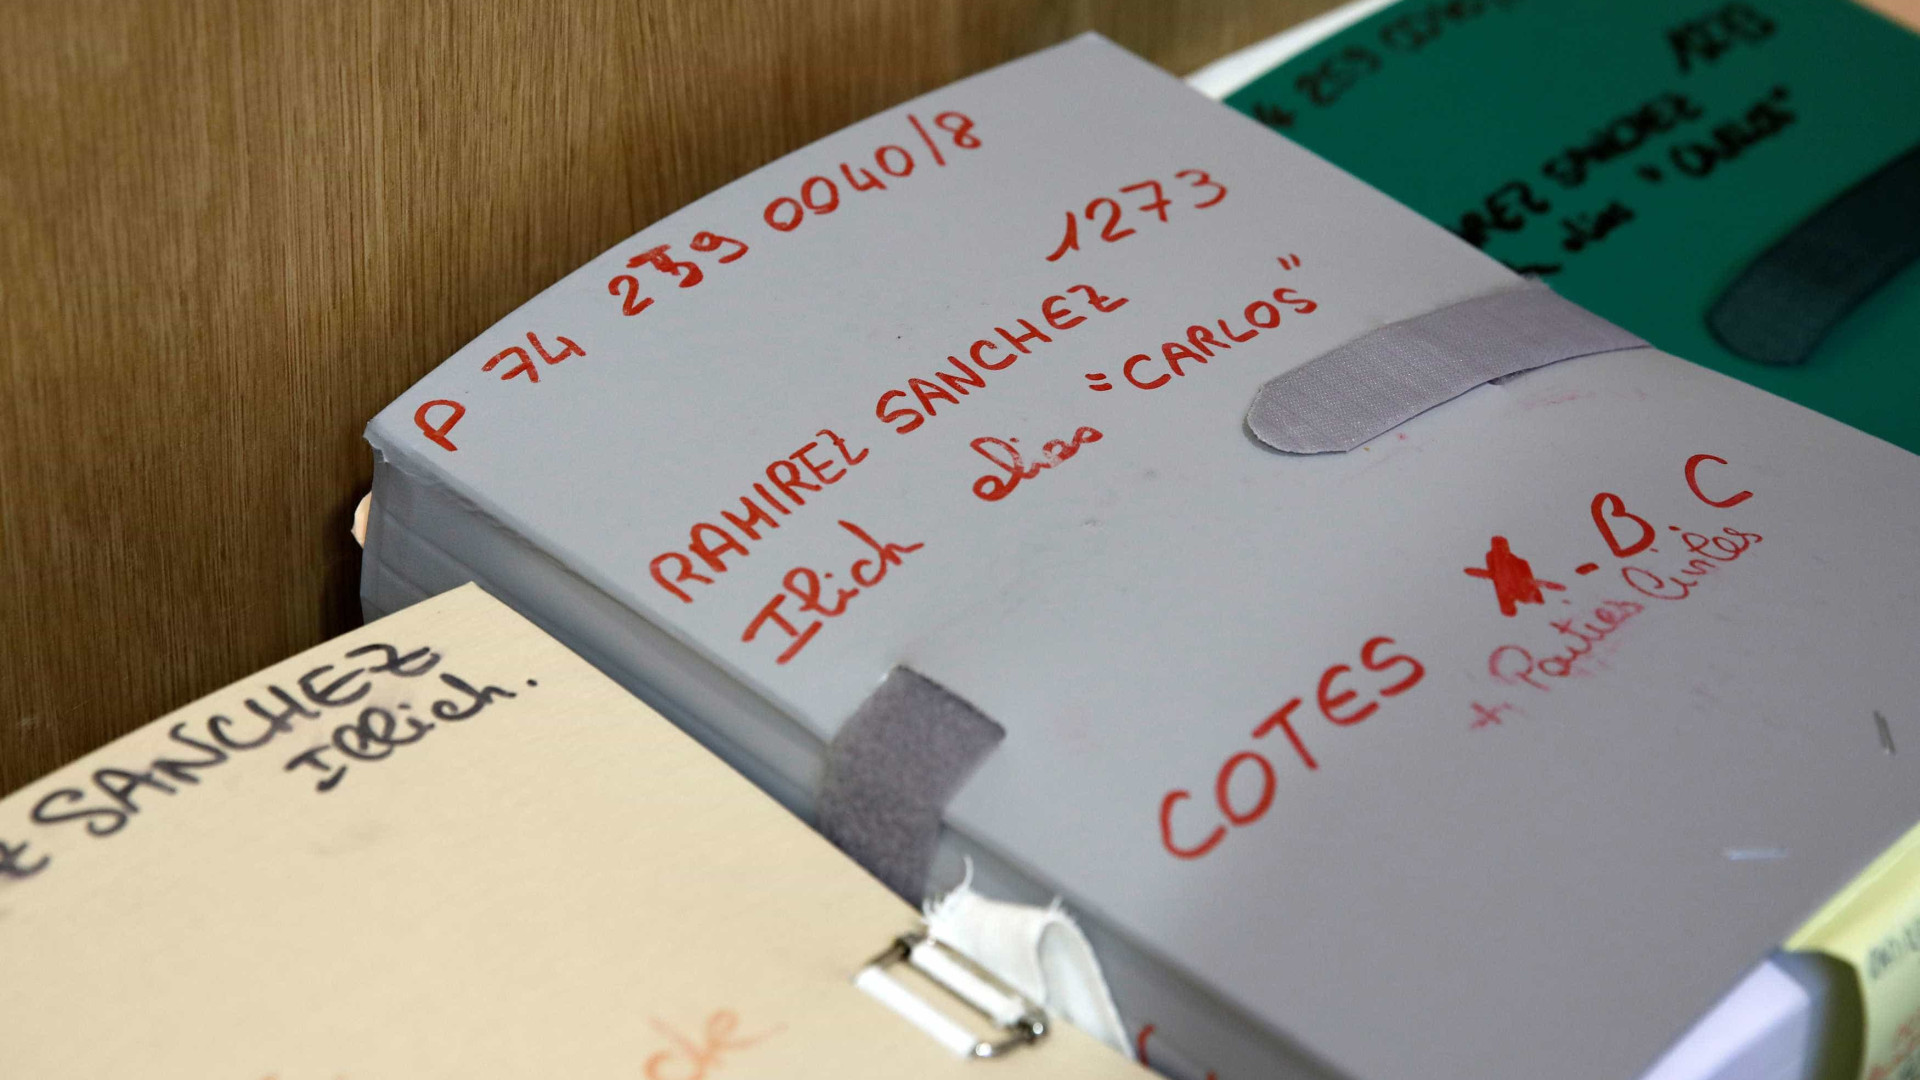 P 74 259 0040/8
1273
RAMIREZ SANCHEZ
Ilich alias "CARLOS"
COTES A. B. C
+ Parties Civiles
SANCHEZ
Illich.
259
1273
SANCHEZ
alias "CARLOS"